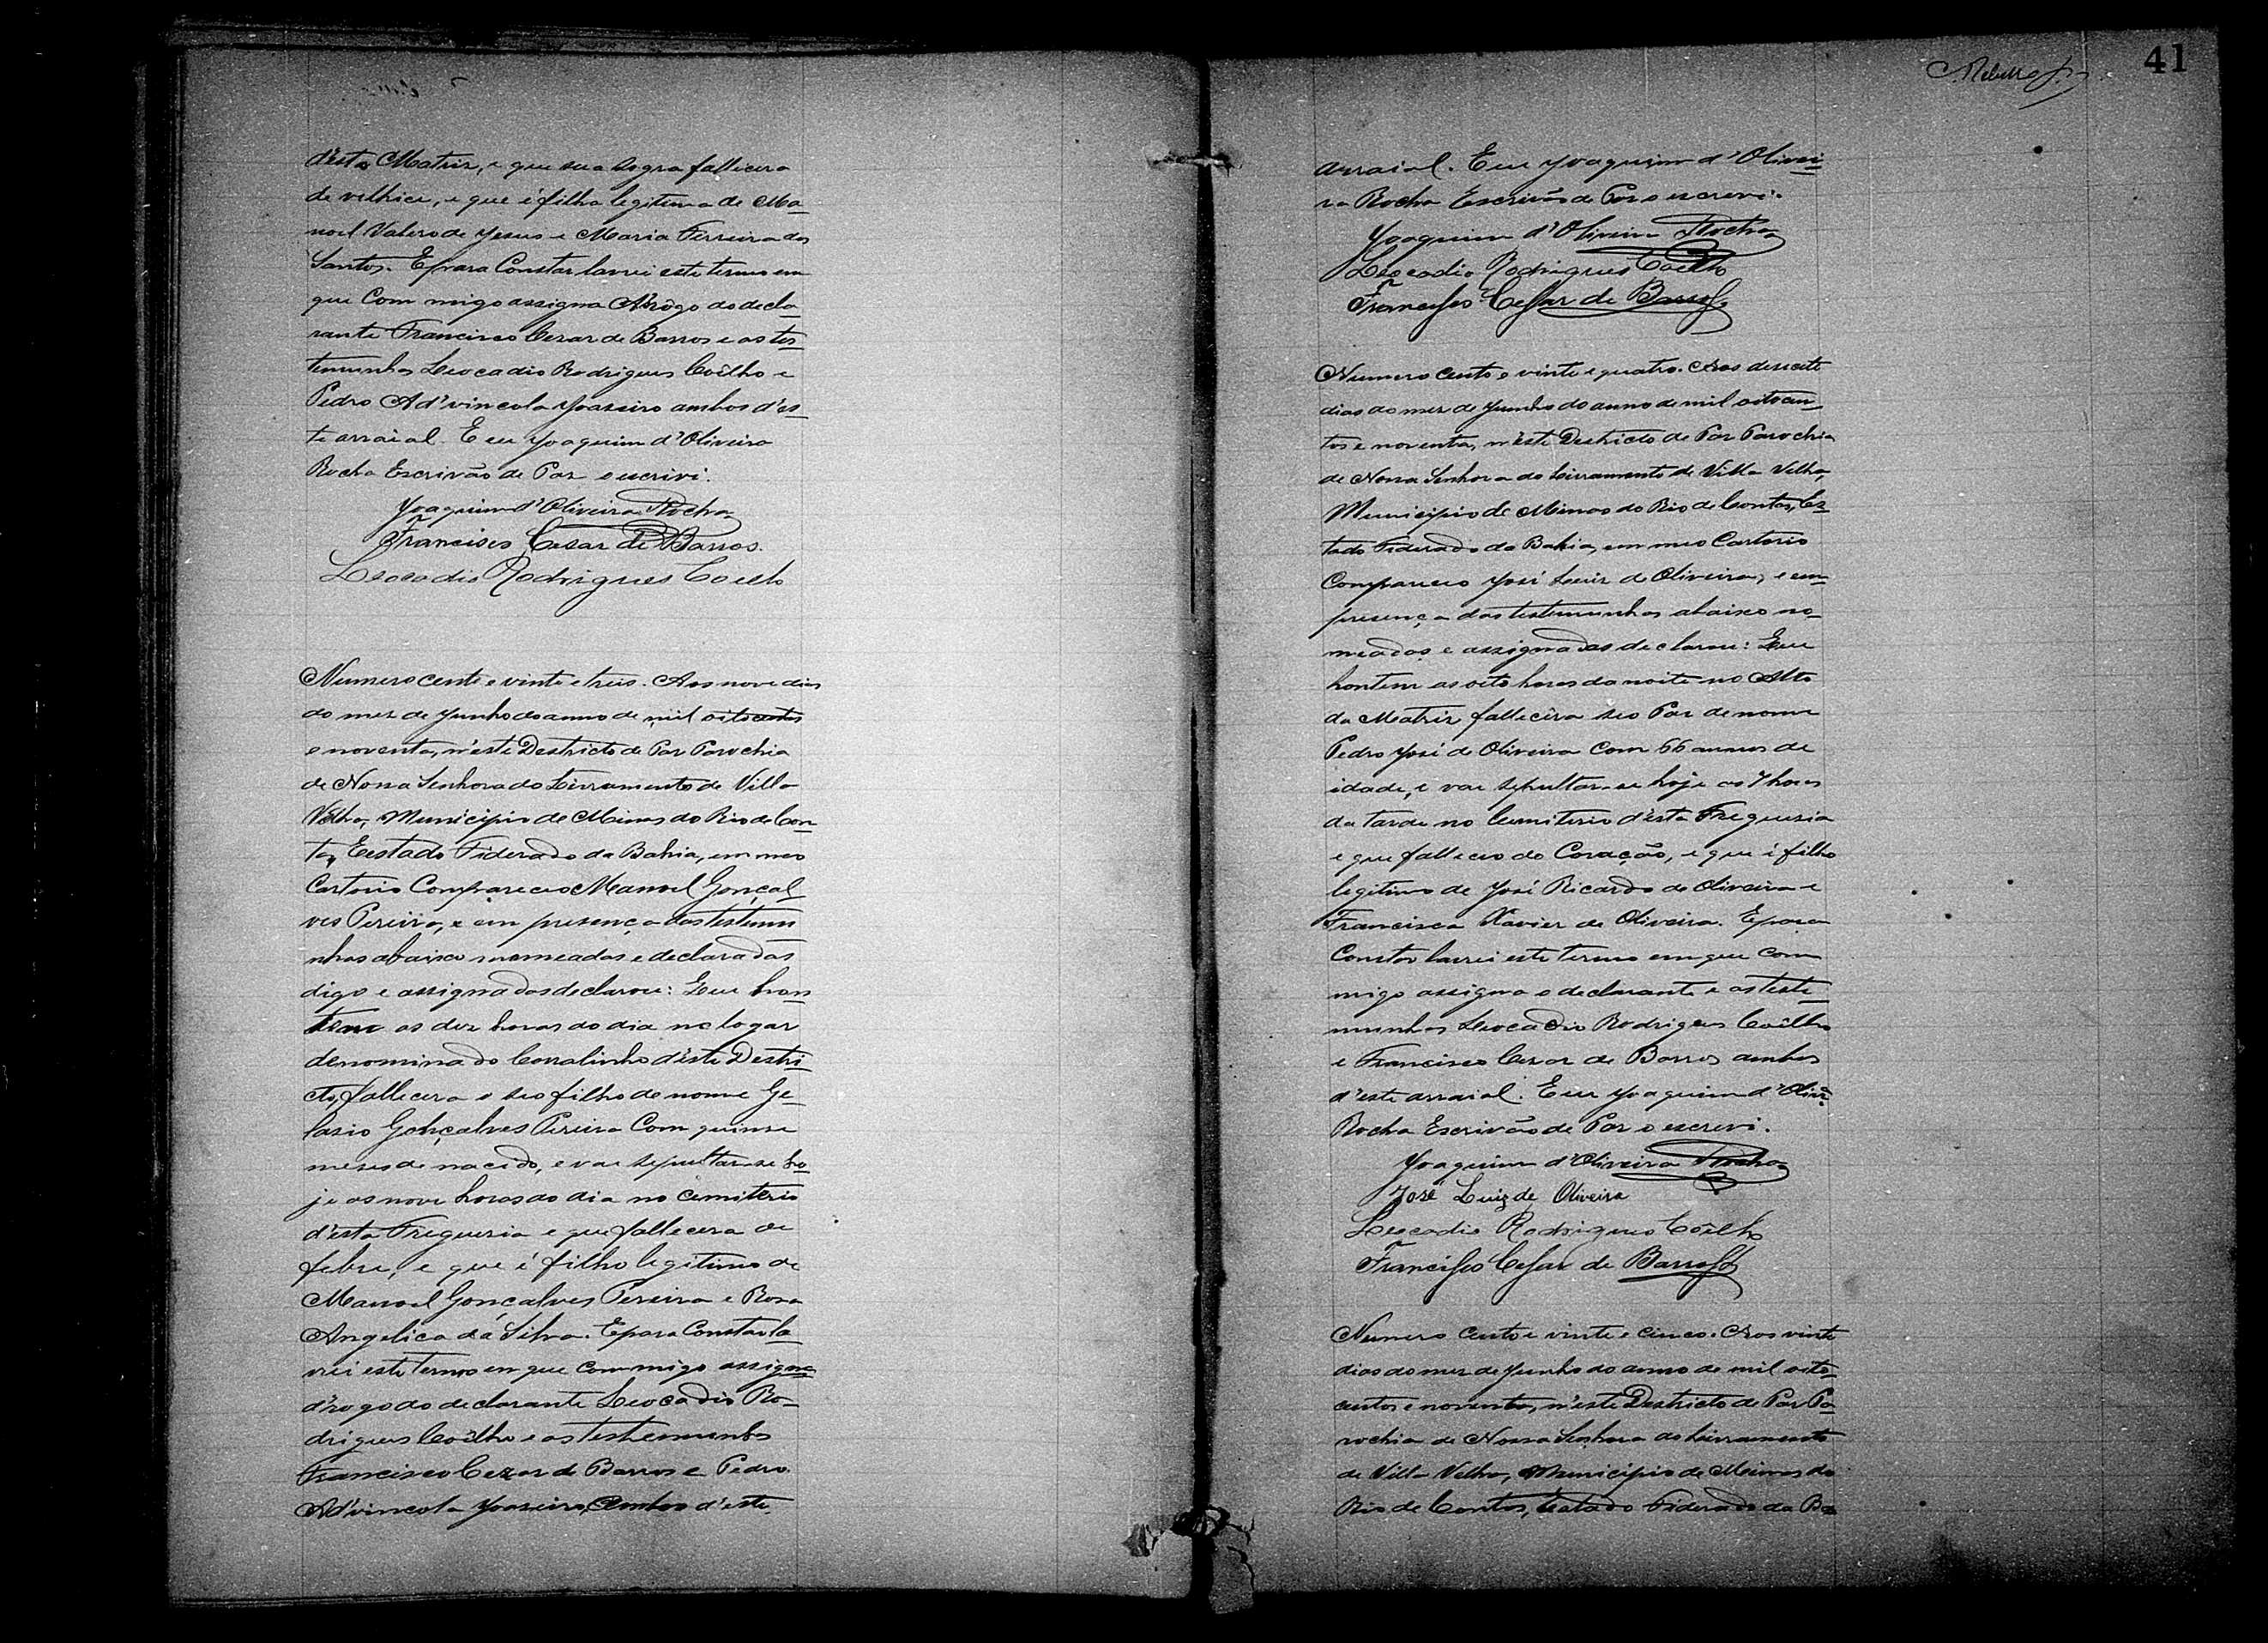 d'esta Matriz, e que sua sogra fallecera
de velhice, e que é filha legitima de Ma-
noel Valero de Jesus e Maria Ferreira dos
Santos. E para Constar lavrei este termo em
que Commigo assigna Arôgo do decla-
rante Francisco Cezar de Barros e as tes-
temunhas Leocadio Rodrigues Coêlho e
Pedro Ad'vincola Joazeiro ambos d'es-
te arraial. E eu Joaquim d'Oliveira
Rocha Escrivão de Paz o escrivi.
Joaquim d'Oliveira Rocha
Francisco Cesar de Barros.
Leocadio Rodrigues Coelho
Numero cento e vinte e treis. Aos nove dias
do mez de Junho do anno de mil oitocentos
e noventa, n'este Destricto de Paz Parochia
de Nossa Senhora do Livramento de Villa
Velha, Municipio de Minas do Rio de Con-
tas, Eestado Fiderado da Bahia, em meo
Cartorio Compareceo Manoel Gonçal-
ves Pereira, e em presença das testemu
nhas abaixo nomeadas e declaradas
digo e assignadas declarou: Que hon-
tem as dez horas do dia no logar
denominado Corralinho d'êste Destri-
cto, fallecera o seo filho de nome Ge-
lasio Gonçalves Pereira Com quinse
meses de nacido, e vae sepultar-se ho-
je as nove horas do dia no Cemiterio
d'esta Freguesia e que fallecera de
febre, e que é filho legitimo de
Manoel Gonçalves Pereira e Rosa
Angelica da Silva. E para Constar la-
vrei este termo em que commigo assigna
d'rogo do declarante Leocadio Ro-
drigues Coêlho e as testemunhas
Francisco Cezar de Barros e Pedro
Ad'vincola Joazeiro, Ambos d'este
41
arraial. E eu Joaquim d'Olivei-
ra Rocha Escrivão de Paz o escrevi.
Joaquim d'Oliveira Rocha
Leocadio Rodrigues Coêlho
Francisco Cesar de Barros
Numero cento e vinte e quatro. Aos desecete
dias do mez de Junho do anno de mil oitocen-
tos e noventa, n'êste Destricto de Paz Parochia
de Nossa Senhora do Livramento de Villa Velha,
Municipio de Minas do Rio de Contas, Es-
tado Fiderado da Bahia, em meo Cartorio
Compareceo José Luiz de Oliveira, e em
presença das testemunhas abaixo no-
meadas e assignadas declarou: Que
hontem as oito horas da noite no Alto
da Matriz fallecêra seo Pae de nome
Pedro José de Oliveira Com 66 annos de
idade, e vae sepultar-se hoje as 4 horas
da tarde no Cemiterio d'êsta Freguesia
e que falleceo do Coração, e que é filho
legitimo de José Ricardo de Oliveira e
Francisca Xavier de Oliveira. E para
Constar lavrei este termo em que com
migo assigna o declarante e as teste-
munhas Leocadio Rodrigues Coêlho
e Francisco Cezar de Barros ambos
d'este arraial. E eu Joaquim d'Olivrª
Rocha Escrivão de Paz o escrevi.
Joaquim d'Oliveira Rocha
José Luiz de Oliveira
Leocadio Rodrigues Coêlho
Francisco Cesar de Barros
Numero cento e vinte e cinco. Aos vinte
dias do mez de Junho do anno de mil oito-
centos e noventa, n'êste Destricto de Paz Pa-
rochia de Nossa Senhora do Livramento
de Villa Velha, Municipio de Minas do
Rio de Contas, Estado Fiderado da Ba-